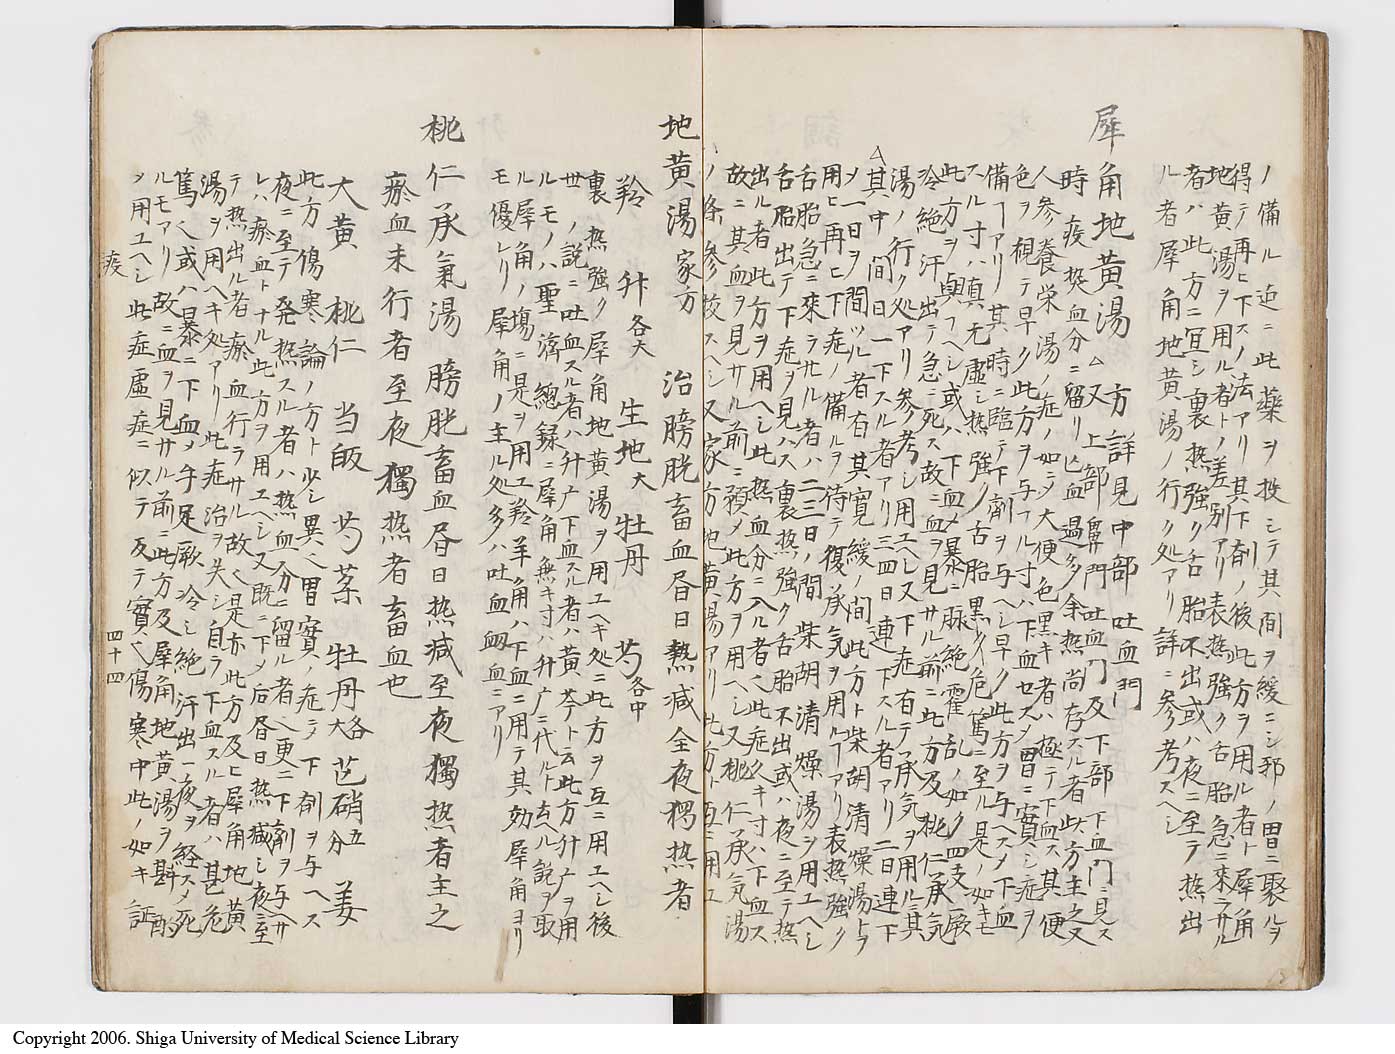 ノ備ル迄ニ此藥ヲ投シテ其間ヲ緩ニシ邪ノ胃ニ聚ルヲ
得テ再ヒ下スノ法アリ其下剤ノ後此方ヲ用ル者ト犀角
地黄湯ヲ用ル者トノ差別アリ表熱強ク舌胎急ニ来ラサル
者ハ此方ニ宜シ裏熱強ク舌胎不出或ハ夜ニ至テ熱出
ル者犀角地黄湯ノ行ク処アリ詳ニ参考スヘシ
犀角地黄湯 方詳見中部吐血門
△又上部鼻門吐血門及下部下血門ニ見ス
時疫熱血分ニ留リ亡血過多余熱尚存スル者此方主之又
人参養栄湯ノ症ノ如ニメ大便色黒キ者ハ極テ下血ス其便
色ヲ視テ早ク此方ヲ与フル寸ハ下血セス胃ニ實シ症ヲ
備ーアリ其時ニ臨テ下剤ヲ与ヘシ早ク此方ヲ与ヘスメ下血
スル寸ハ真元虚シ熱強ク舌胎黒ク危篤ニ至ル是ノ如キモ
此方ヲ與フヘシ或ハ下血メ暴ニ脉絶霍乱ノ如ク四支厥
冷絶汗出テ急ニ死ス故ニ血ヲ見サル前ニ此方及桃仁承気
湯ノ行ク処アリ参考シ用エヘシ又下症有テ承気ヲ用ル其
△其中間日一下スル者アリ三四日連下スル者アリ二日連下
メ一日ヲ間ツル者有其寛緩ノ間此方ト柴胡清燥湯トヲ
用ヒ再ヒ下症ノ備ルヲ待テ復承気ヲ用ルーアリ表熱強ク
舌胎急ニ来ラサル者ハ二三日ノ間柴胡清燥湯ヲ用エヘシ
舌胎出テ下症ヲ見ハス裏熱強ク舌胎不出或ハ夜ニ至テ熱
出ル者此方ヲ用ヘシ此熱血分ニ入ル者ヘ此症久キ寸ハ下血ス
故ニ其血ヲ見サル前ニ預メ此方ヲ用ヘシ又桃仁承気湯
ノ条参攷スヘシ又家方地黄湯アリ此方ト互ニ用エ
地黄湯家方 治膀胱畜血昼日熱减全夜独热者
羚 升各大 生地大 牡丹 芍各中
裏熱強ク犀角地黄湯ヲ用エヘキ処ニ此方ヲ互ニ用エヘシ後
世ノ説ニ吐血スル者ハ升广下血スル者ハ黄芩ト云此方升广ヲ用
ルモノハ聖濟總録ニ犀角無キ寸ハ升广ニ代ルト云ヘル説ヲ取
ル犀角ノ塲ニ是ヲ用エ羚羊角ハ下血ニ用テ其効犀角ヨリ
モ優レリ犀角ノ主ル処多ハ吐血衂血ニアリ
桃仁承氣湯 膀胱畜血昼日热减至夜獨热者主之
瘀血未行者至夜獨热者畜血也
大黄 桃仁 当皈 芍薬 牡丹各大 芒硝五分 姜
此方傷寒論ノ方ト少シ異ヘ胃實ノ症ニシテ下剤ヲ与ヘス
夜ニ至テ発热スル者ハ热血分ニ留ル者ヘ更ニ下剤ヲ与ヘサ
レハ瘀血トナル此方ヲ用エヘシ又既ニ下メ后昼日热减シ夜ニ至
テ热出ル者瘀血行ラサル故ヘ是亦此方及ヒ犀角地黄
湯ヲ用ヘキ処アリ此症治ヲ失シ自ラ下血スル者ハ甚危
篤ヘ或ハ暴ニ下血メ手足厥冷シ絶汗出一夜ヲ経スメ死
ルモアリ故ニ血ヲ見サル前ニ此方及犀角地黄湯ヲ斟酌
メ用エヘシ此症虚症ニ似テ反テ實ヘ傷寒中此ノ如キ証
疫
四十四
Copyright 2006. Shiga University of Medical Science Library